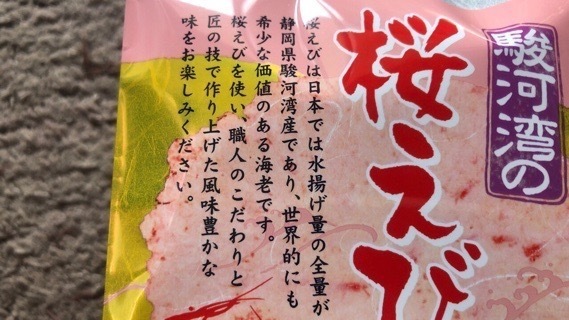 駿河湾の
桜えび
桜えびは日本では水揚げ量の全量が
静岡県駿河湾産であり、世界的にも
希少な価値のある海老です。
桜えびを使い、職人のこだわりと
匠の技で作り上げた風味豊かな
味をお楽しみください。